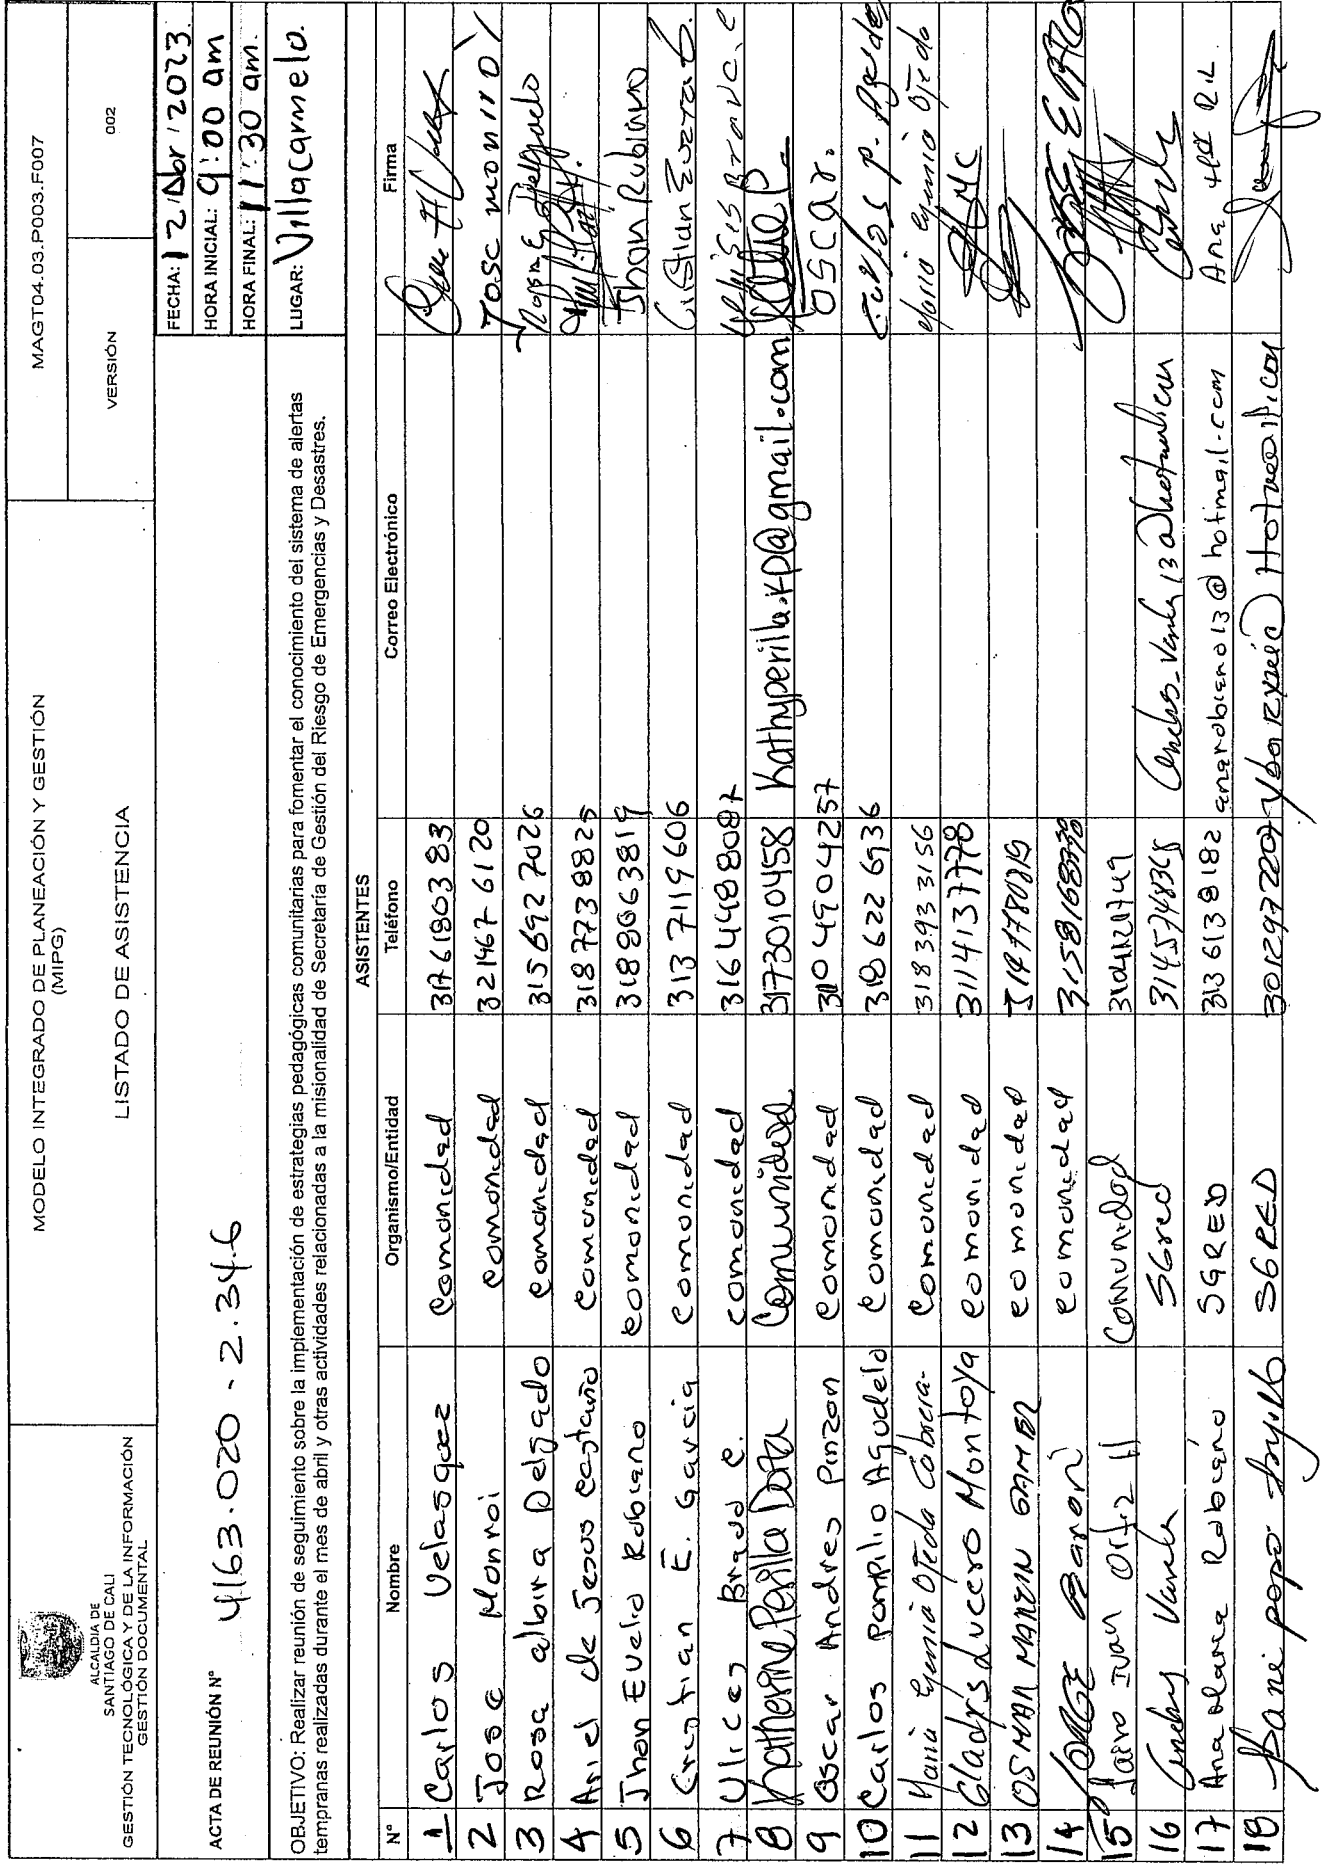 ALCALDIA DE
SANTIAGO DE CALI
GESTIÓN TECNOLÓGICA Y DE LA INFORMACIÓN
GESTIÓN DOCUMENTAL
MODELO INTEGRADO DE PLANEACIÓN Y GESTIÓN
(MIPG)
LISTADO DE ASISTENCIA
MAGT04.03.P003.F007
VERSIÓN 002
ACTA DE REUNIÓN N° 4163.020-2.34.6
FECHA: 12/Abr/2023
HORA INICIAL: 9:00 am
HORA FINAL: 11:30 am.
OBJETIVO: Realizar reunión de seguimiento sobre la implementación de estrategias pedagógicas comunitarias para fomentar el conocimiento del sistema de alertas
tempranas realizadas durante el mes de abril y otras actividades relacionadas a la misionalidad de Secretaría de Gestión del Riesgo de Emergencias y Desastres.
LUGAR: Villacarmelo.
ASISTENTES
N° Nombre Organismo/Entidad Teléfono Correo Electrónico Firma
1 Carlos Velasquez comonidad
2 Jose Monroi comonidad 3214676120 Jose monrroy
3 Rosa albira Delgado comonidad 3156927026 Rosa E Delgado
4 Ariel de Jesus castaño comonidad 3187738825
5 Jhon Evelio Robiano comonidad 3188663819 Jhon Rubiano
6 Cristian E. Garcia comonidad 3137119606 Cristian
7 Ulices Bravo c. comonidad 3164488087
8 Katherine Perilla Dota Comunidad 3173010458 kathyperilla.kp@gmail.com
9 Oscar Andres Pinzon comonidad 3104904257 OSCAR.
10 Carlos Pompilio Agudelo comonidad 3186226936 Carlos P.
11 Maria Egenia Ojeda Cabrera comonidad 3183933156 Maria Egenia Ojeda
12 Gladys Lucero Montoya comonidad 3114137770
13 OSMAN comonidad
14 JORGE comonidad JORGE
15 Jairo Ivan Ortiz comunidad
16 Varela SGred 3145748365
17 Ana Robiano SGRED 3136138182 anarobiano13@hotmail.com Ana
18 SGRED 3012972201